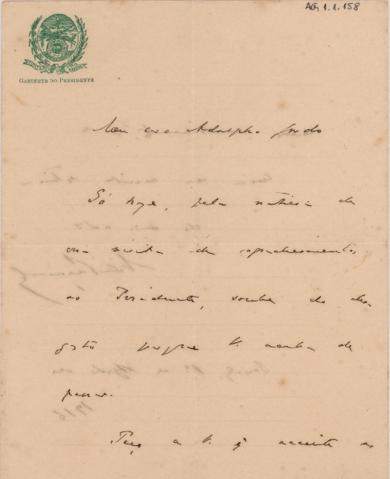 AG 1.1.158
GABINETE DO PRESIDENTE
Meu caro Adolpho Gordo
Só hoje, pela noticia de
sua visita de agradecimentos
ao Presidente, soube do des-
gosto porque V. acaba de
passar.
Peço a V. q acceite os
1916